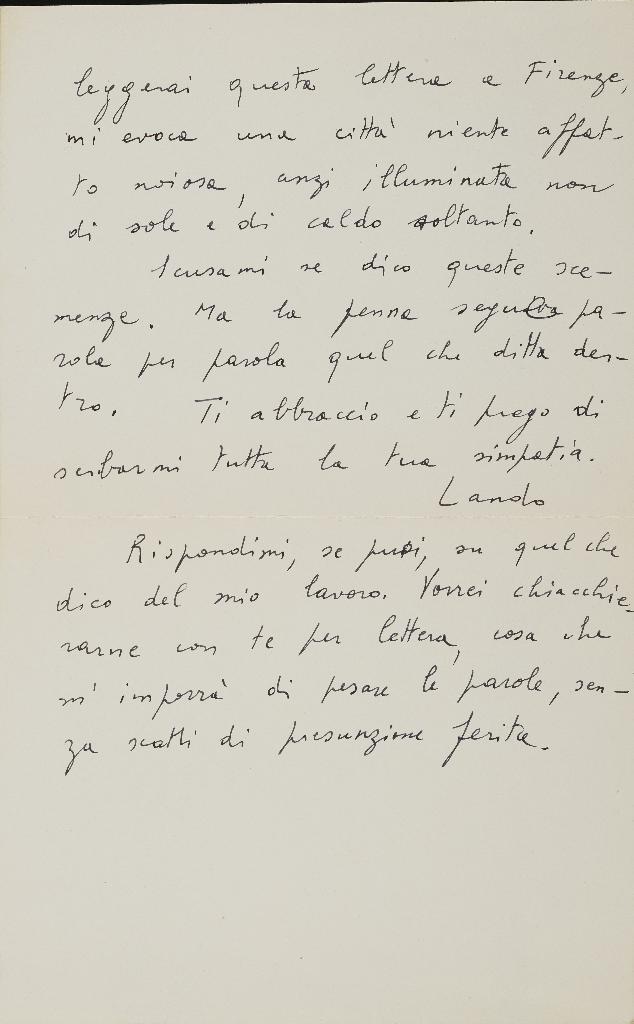 leggerai questa lettera a Firenze,
mi evoca una città niente affat-
to noiosa, anzi illuminata non
di sole e di caldo soltanto.
Scusami se dico queste sce-
menze. Ma la penna segue pa-
rola per parola quel che ditta den-
tro. Ti abbraccio e ti prego di
serbarmi tutta la tua simpatia.
Lando
Rispondimi, se puoi, su quel che
dico del mio lavoro. Vorrei chiacchie-
rarne con te per lettera, cosa che
m'imporrà di pesare le parole, sen-
za scatti di presunzione ferita.